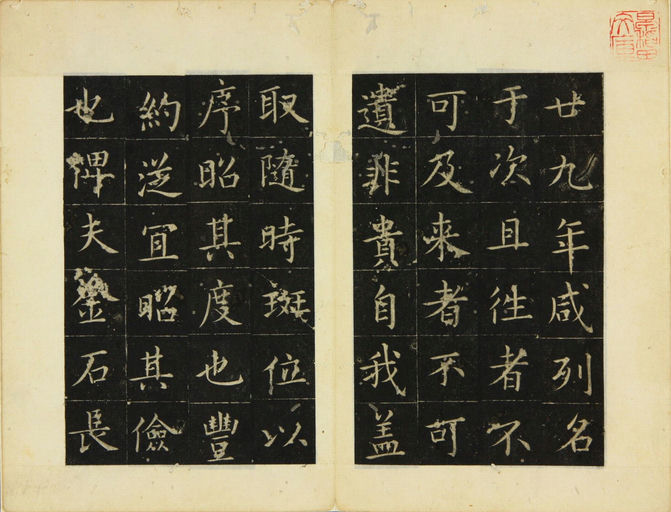 廿九年咸列名
于次且往者不
可及来者不可
遺非貴自我盖
取隨時班位以
序昭其度也豐
約從宜昭其儉
也俾夫鋻石長